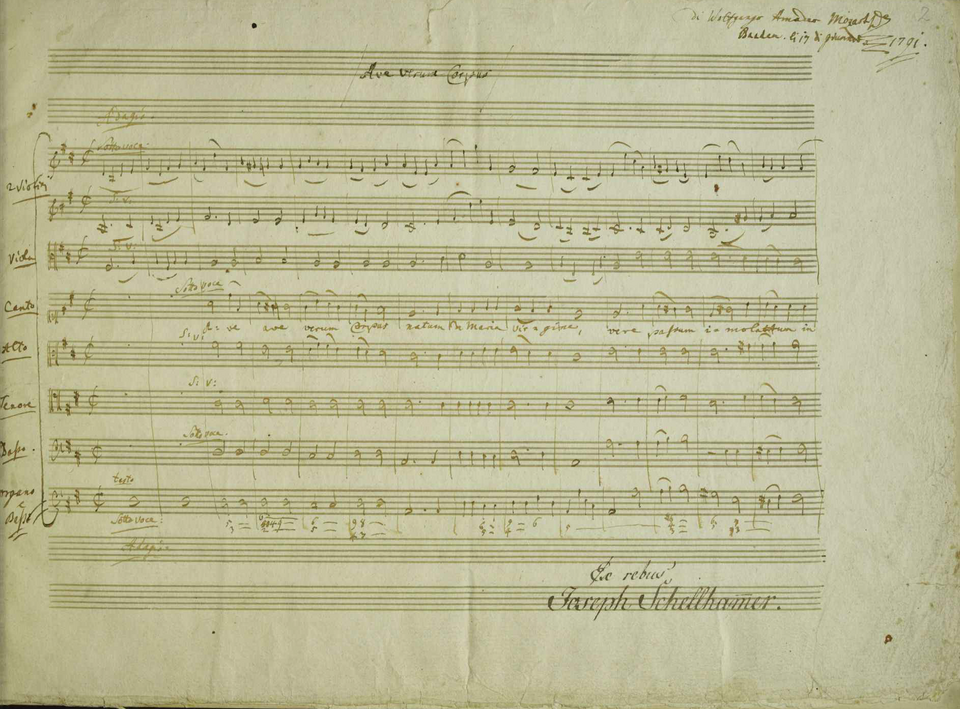 di Wolfgango Amadeo Mozart
2
Baaden. li 17 di giunio 1791.
Ave verum Corpus
Adagio.
Sotto voce.
2 Violini
S: v.
Viola
S: v:
Canto
Sotto voce
A: ve ave verum Corpus natum de Maria virgine, vere passum immolatum in
Alto
S: v:
Tenore
S: v:
Basso.
Sotto voce.
Organo
tasto
e Basso
Sotto voce:
Adagio.
Ex rebus
Joseph Schellham̄er.